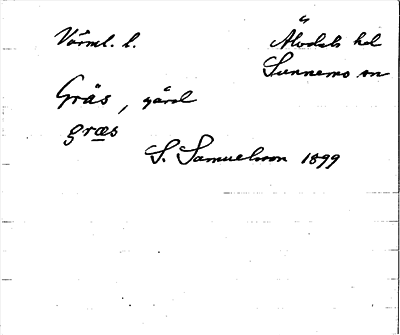 Värml. l.
Älvdals hd
Sunnemo sn
Gräs, gård
græs
S. Samuelsson 1899